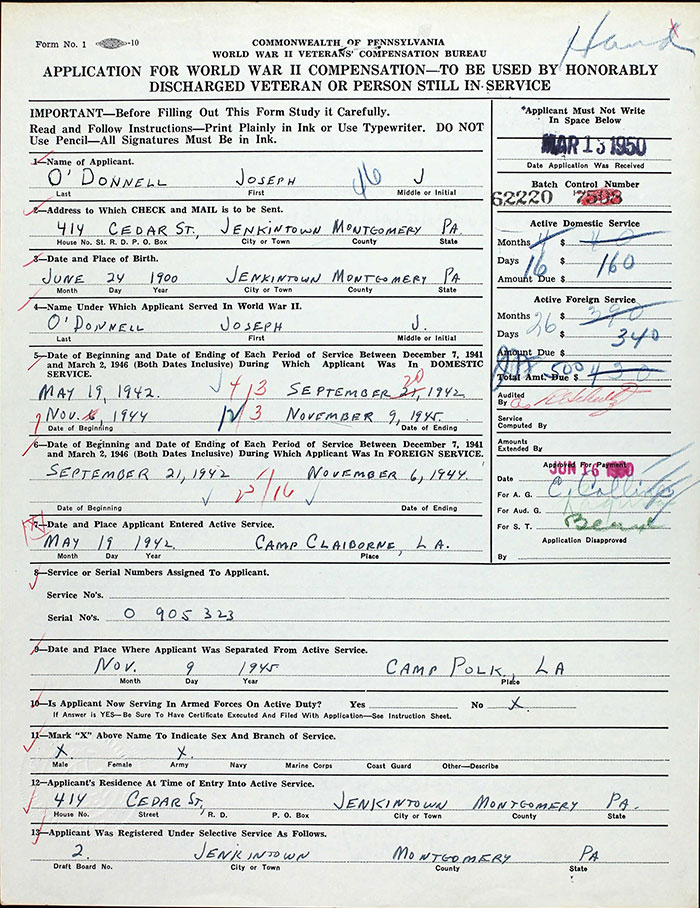 Form No. 1 -10
COMMONWEALTH OF PENNSYLVANIA
WORLD WAR II VETERANS' COMPENSATION BUREAU
APPLICATION FOR WORLD WAR II COMPENSATION—TO BE USED BY HONORABLY
DISCHARGED VETERAN OR PERSON STILL IN SERVICE
IMPORTANT—Before Filling Out This Form Study it Carefully.
Read and Follow Instructions—Print Plainly in Ink or Use Typewriter. DO NOT
Use Pencil—All Signatures Must Be in Ink.
1—Name of Applicant.
O'DONNELL JOSEPH 46 J
Last First Middle or Initial
2—Address to Which CHECK and MAIL is to be Sent.
414 CEDAR ST, JENKINTOWN MONTGOMERY PA.
House No. St. R. D. P. O. Box City or Town County State
3—Date and Place of Birth.
JUNE 24 1900 JENKINTOWN MONTGOMERY PA
Month Day Year City or Town County State
4—Name Under Which Applicant Served In World War II.
O'DONNELL JOSEPH J.
Last First Middle or Initial
5—Date of Beginning and Date of Ending of Each Period of Service Between December 7, 1941
and March 2, 1946 (Both Dates Inclusive) During Which Applicant Was In DOMESTIC
SERVICE.
MAY 19, 1942. 4/13 SEPTEMBER 21, 1942
20
NOV. 6, 1944 12/3 NOVEMBER 9, 1945.
Date of Beginning Date of Ending
6—Date of Beginning and Date of Ending of Each Period of Service Between December 7, 1941
and March 2, 1946 (Both Dates Inclusive) During Which Applicant Was In FOREIGN SERVICE.
SEPTEMBER 21, 1942 NOVEMBER 6, 1944.
25/16
Date of Beginning Date of Ending
7—Date and Place Applicant Entered Active Service.
MAY 19 1942. CAMP CLAIBORNE, LA.
Month Day Year Place
8—Service or Serial Numbers Assigned To Applicant.
Service No's.
Serial No's. O 905 323
9—Date and Place Where Applicant Was Separated From Active Service.
NOV. 9 1945 CAMP POLK, LA
Month Day Year Place
10—Is Applicant Now Serving In Armed Forces On Active Duty? Yes No X.
If Answer is YES—Be Sure To Have Certificate Executed And Filed With Application—See Instruction Sheet.
11—Mark "X" Above Name To Indicate Sex and Branch of Service.
X. X.
Male Female Army Navy Marine Corps Coast Guard Other—Describe
12—Applicant's Residence At Time of Entry Into Active Service.
414 CEDAR ST, JENKINTOWN MONTGOMERY PA.
House No. Street R. D. P. O. Box City or Town County State
13—Applicant Was Registered Under Selective Service As Follows.
2. JENKINTOWN MONTGOMERY PA
Draft Board No. City or Town County State
*Applicant Must Not Write
In Space Below
MAR 13 1950
Date Application Was Received
Batch Control Number
62220
Active Domestic Service
Months 4 $ 40
Days 16 $ 160
Amount Due $
Active Foreign Service
Months 26 $ 390
Days $ 340
Amount Due $
500
Total Amt. Due $ 430
Audited
By
Service
Computed By
Amounts
Extended By
Approved For Payment
JUN 16 1950
Date
For A. G.
For Aud. G.
For S. T.
Application Disapproved
By